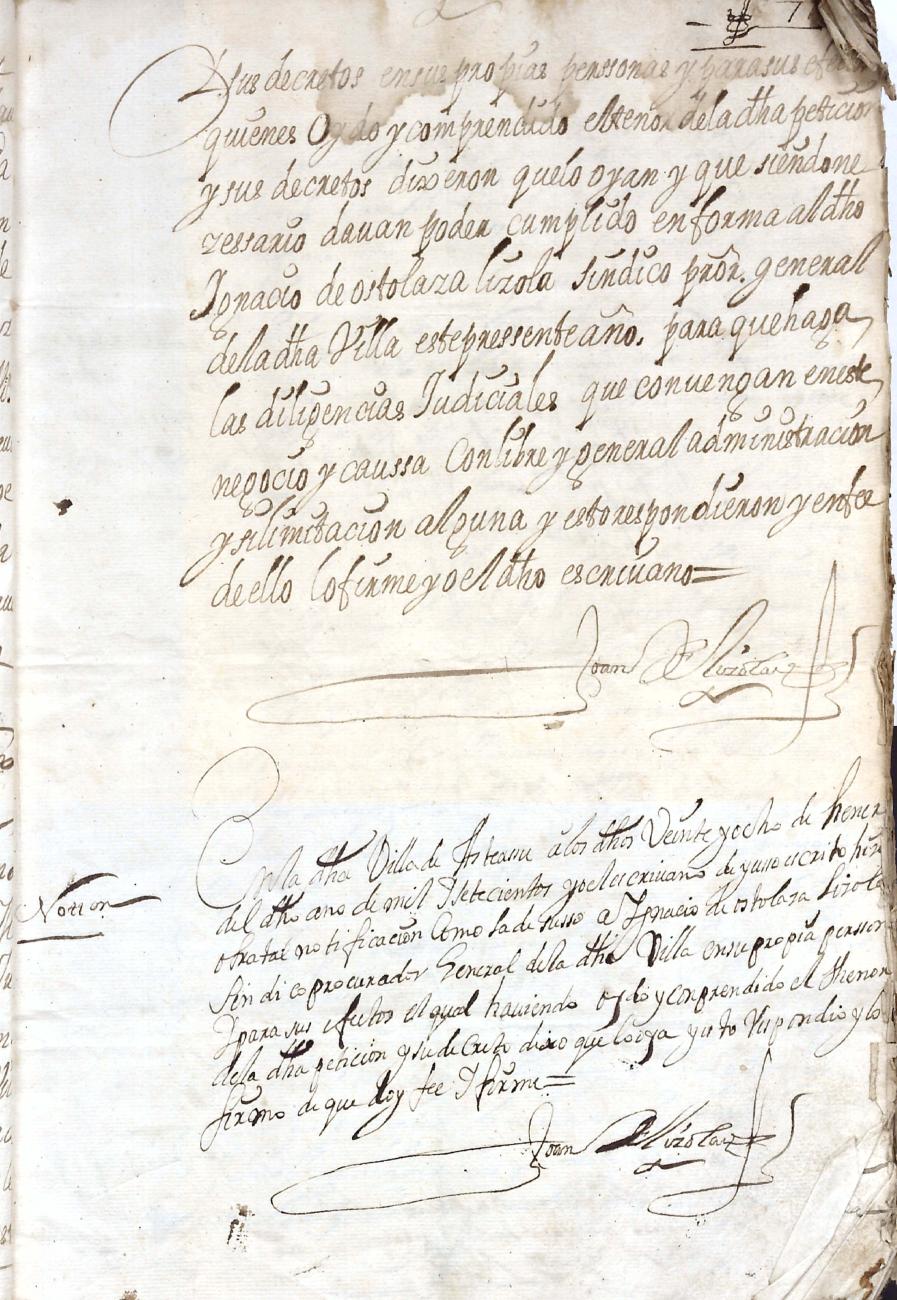 7
Y sus decretos en sus propias perssonas y para sus efectos
quienes Oydo y comprendido el tenor de la dha peticion
y sus decretos dixeron que lo oyan y que siendo ne
zessario davan poder cumplido en forma al dho
Ignacio de ostolaza lizola sindico pror. general
de la dha Villa este pressente año. para que haga
las diligencias Judiciales que convengan en este
negocio y caussa Con libre y general administracion
y sin limitacion alguna y esto respondieron y en fee
de ello lo firme yo el dho escrivano=
Joan De Lizola
En la dha Villa de Asteasu a los dhos Veinte y ocho de Hener
Notion
del dho ano de mil Setecientos yo el escrivano de yusso escrito hize
otra tal notificacion Como la de susso a Ignacio de ostolaza Lizola
Sindico procurador General de la dha Villa en su propia persson
y para sus efectos el qual haviendo oydo y conprendido el thenor
de la dha peticion y su decreto dixo que lo oya y esto Respondio y lo
firmo de que doy fee Y firme=
Joan De Lizola